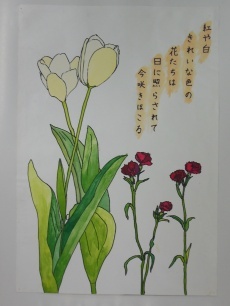 紅や白
きれいな色の
花たちは
日に照らされて
今咲きほこる